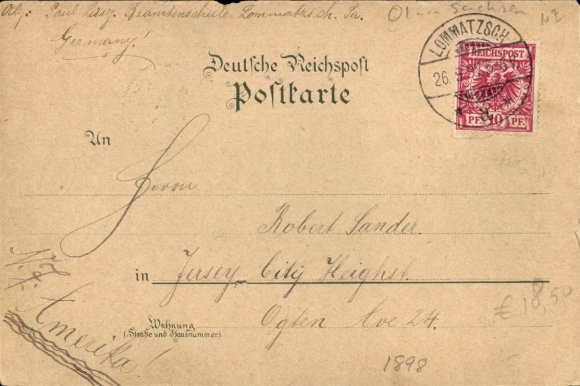 Paul Beamtenschule Lommatzsch. Sa.
Germany!
Sachsen
Deutsche Reichspost
Postkarte
LOMMATZSCH
26
REICHSPOST
10
PF. 10 PF.
An
Herrn
Robert Sander.
in Jersey, City Heighst.
Wohnung
(Straße und Hausnummer)
Ogten Ave 24.
N.J.
Amerika!
€ 18,50
1898